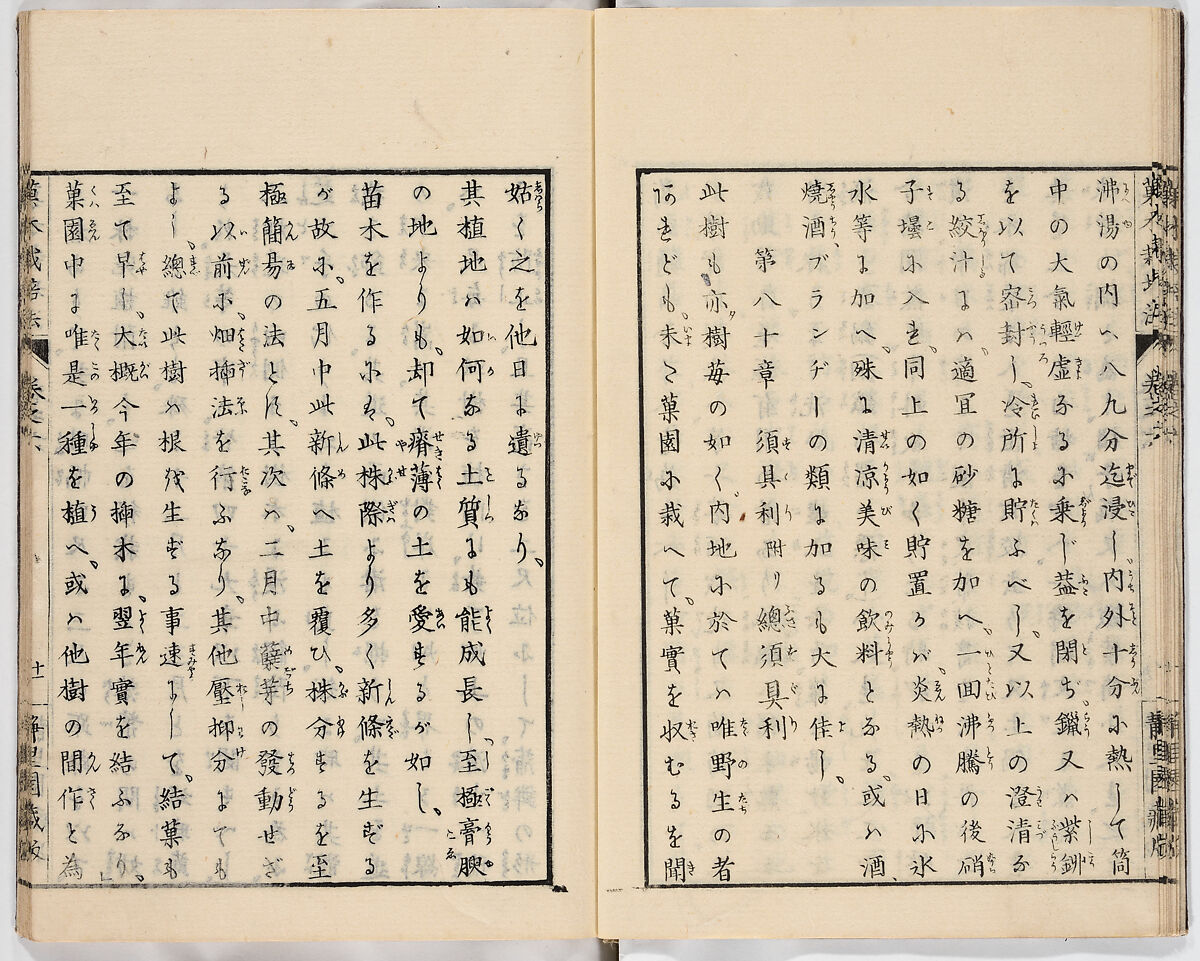 菓木栽培法
卷之六
靜里園藏版
沸湯の内へ八九分迄浸し、内外十分に熱して筒
中の大氣輕虛なるに乗じ葢を閉ぢ、鑞又ハ紫鉚
を以て密封し、冷所に貯ふべし、又以上の澄清な
る絞汁にハ、適宜の砂糖を加へ、一回沸騰の後硝
子壜に入き、同上の如く貯置るバ、炎熱の日に氷
水等に加へ、殊に清凉美味の飲料となる、或ハ酒、
燒酒、ブランデーの類に加るも大に佳し、
第八十章須具利附リ總須具利
此樹も亦樹莓の如く、内地に於てハ唯野生の者
阿れども、未だ菓園に栽へて、菓實を收むるを聞
姑く之を他日に遺るなり、
其植地ハ如何なる土質にも能成長し、至極膏腴
の地よりも、却て瘠薄の土を愛するが如し、
苗木を作るにハ、此株際より多く新條を生ずる
が故に、五月中此新條へ土を覆ひ、株分するを至
極簡易の法とす、其次ハ、二月中蘖芽の發動せざ
る以前に、畑揷法を行ふなり、其他壓抑分にても
よし、總て此樹ハ根を生ずる事速にして、結菓も
至て早し、大概今年の揷木に、翌年實を結ふなり、
菓園中に唯是一種を植へ、或ハ他樹の間作と為
菓木栽培法
卷之六
廿一
靜里園藏版